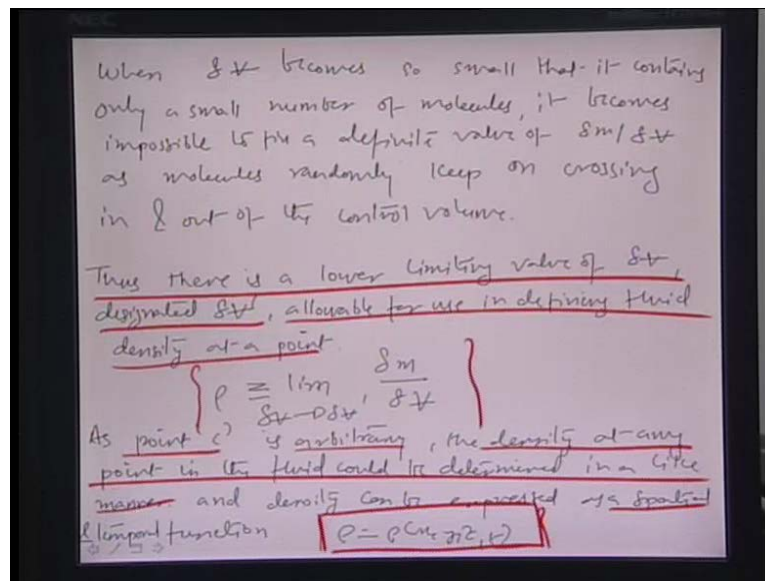 NEC
When δV becomes so small that it contains
only a small number of molecules, it becomes
impossible to fix a definite value of δm/δV
as molecules randomly keep on crossing
in & out of the control volume.
Thus there is a lower limiting value of δV,
designated δV', allowable for use in defining fluid
density at a point.
ρ ≡ lim δm/δV
δV→δV'
As point 'c' is arbitrary, the density at any
point in the fluid could be determined in a like
manner and density can be expressed as a spatial
& temporal function ρ = ρ(x, y, z, t)